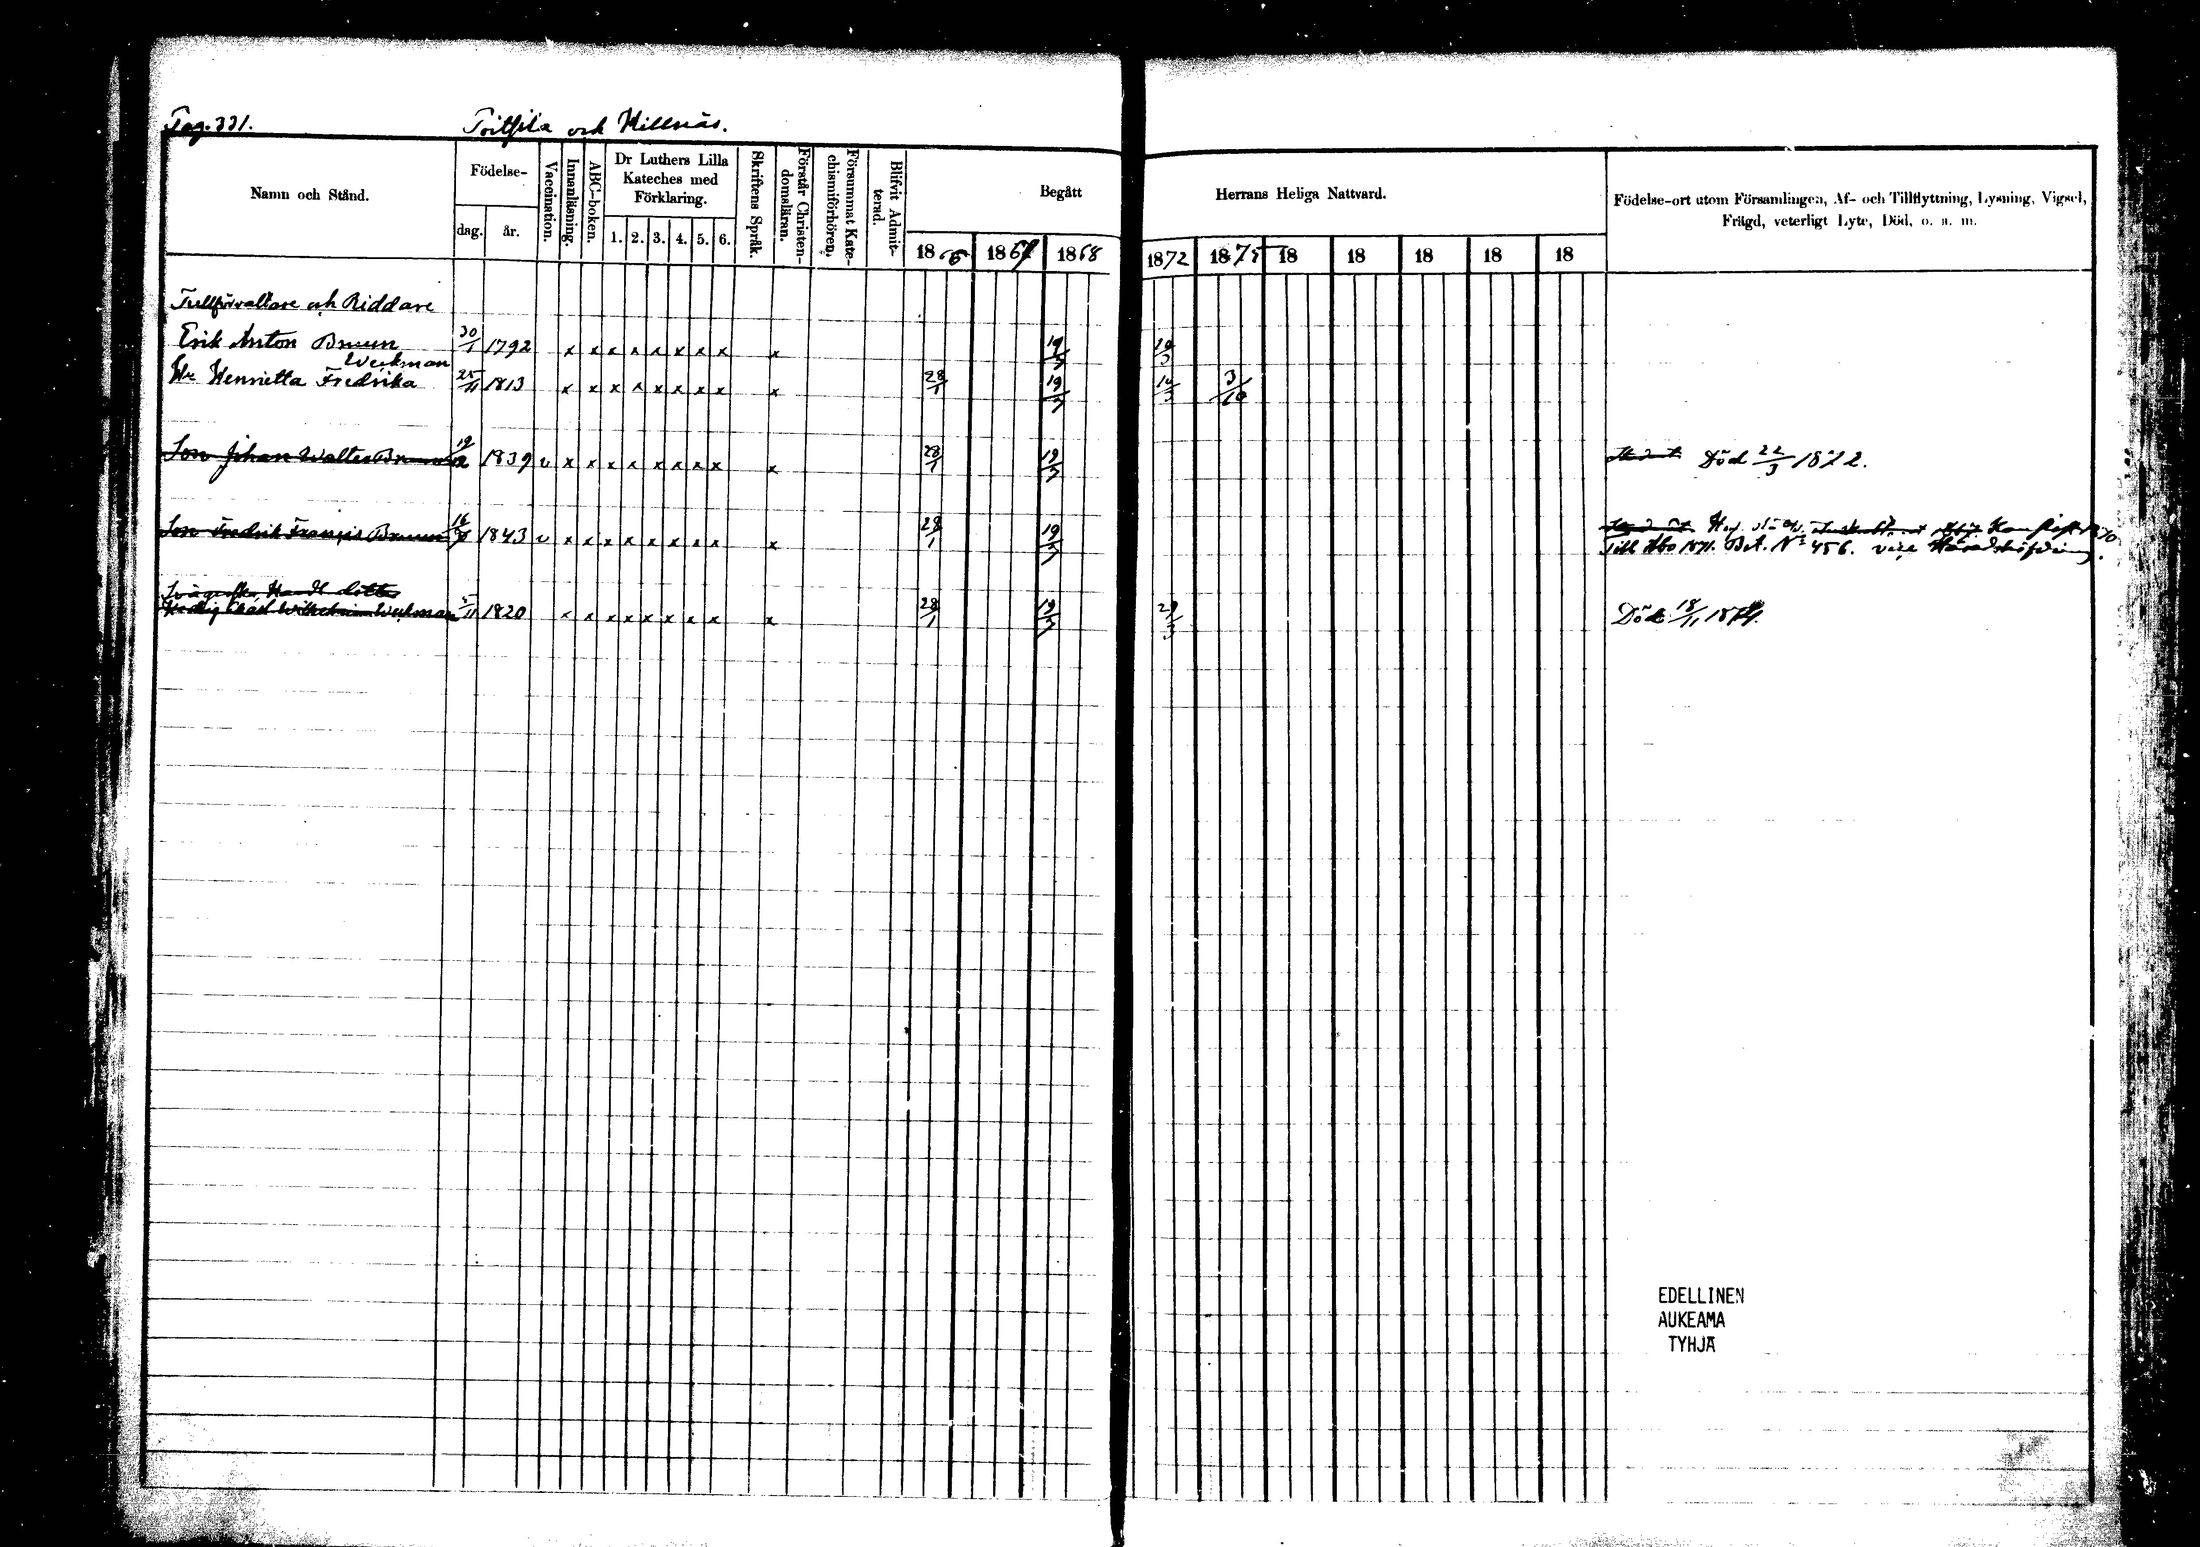 Pag. 331. Toitsila och Killnäs.
Namn och Stånd. Födelse- dag. år. Vaccination. Innanläsning. ABC-boken. Dr Luthers Lilla Kateches med Förklaring. 1. 2. 3. 4. 5. 6. Skriftens Språk. Förstår Christendomsläran. Försummat Katechismiförhören. Blifvit Admitterad. Begått 1866 1867 1868
Herrans Heliga Nattvard. 1872 1875 18 18 18 18 18
Födelse-ort utom Församlingen, Af- och Tillflyttning, Lysning, Vigsel,
Frägd, veterligt Lyte, Död, o. s. m.
Tullförvaltare och Riddare
Erik Anton Bruun 30/1 1792 x x x x x x x x x 19/7 10/3
Weckman
Hu Henrietta Fredrika 25/11 1813 x x x x x x x x x 28/1 19/7 10/3 3/10
Son Johan Walter Bruun 19/2 1839 v x x x x x x x x x 28/1 19/7 Död 22/3 1872.
Son Fredrik François Bruun 16/5 1843 v x x x x x x x x x 28/1 19/7
Till Åbo 1871. Bet. No 456. vice Häradshöfding.
Svägerska Handl. dotter
Hedvig Charl. Wilhelmina Weckman 5/11 1820 x x x x x x x x x 28/1 19/7 29/3 Död 18/11 1874.
EDELLINEN
AUKEAMA
TYHJÄ